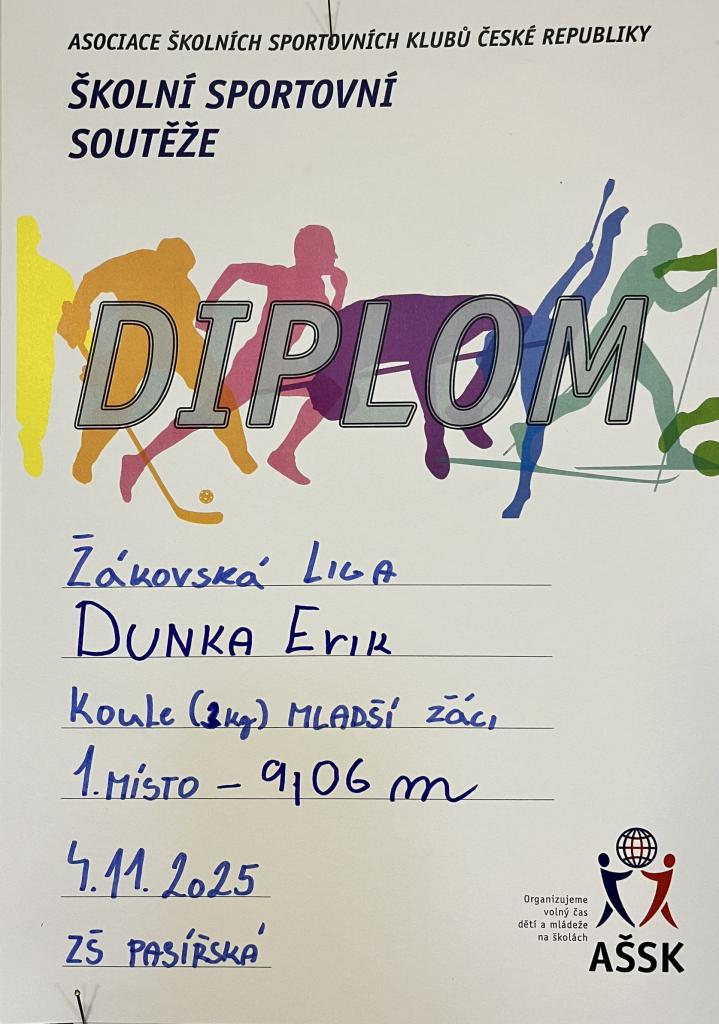 ASOCIACE ŠKOLNÍCH SPORTOVNÍCH KLUBŮ ČESKÉ REPUBLIKY
ŠKOLNÍ SPORTOVNÍ
SOUTĚŽE
DIPLOM
Žákovská LIGA
DUNKA Erik
Koule (3kg) MLADŠÍ žáci
1. MÍSTO – 9,06 m
4.11.2025
ZŠ PASÍŘSKÁ
Organizujeme
volný čas
dětí a mládeže
na školách
AŠSK